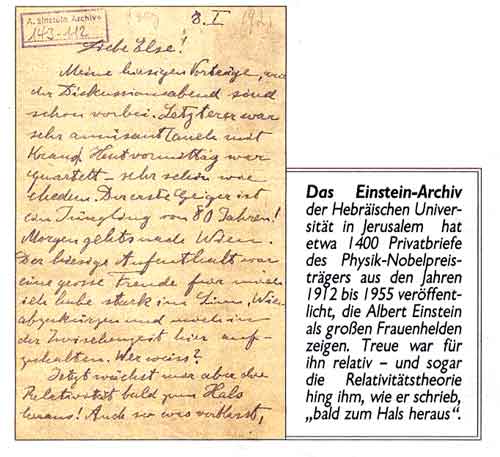 A. Einstein Archive
143-112
8. I 1921
Liebe Else!
Meine hiesigen Vorträge, und
der Diskussionsabend sind
schon vorbei. Letzterer war
sehr amüsant (auch mit
Kraus). Heut vormittag war
Quartett – sehr schön wie
ehedem. Der erste Geiger ist
ein Jüngling von 80 Jahren!
Morgen gehts nach Wien.
Der hiesige Aufenthalt war
eine grosse Freude für mich
ich habe stark im Sinn, Wien
abzukürzen und mich in
der Zwischenzeit hier auf-
zuhalten. Wer weiss?
Jetzt wächst mir aber die
Relativität bald zum Hals
heraus! Auch so was verblasst,
Das Einstein-Archiv
der Hebräischen Univer-
sität in Jerusalem hat
etwa 1400 Privatbriefe
des Physik-Nobelpreis-
trägers aus den Jahren
1912 bis 1955 veröffent-
licht, die Albert Einstein
als großen Frauenhelden
zeigen. Treue war für
ihn relativ – und sogar
die Relativitätstheorie
hing ihm, wie er schrieb,
„bald zum Hals heraus“.